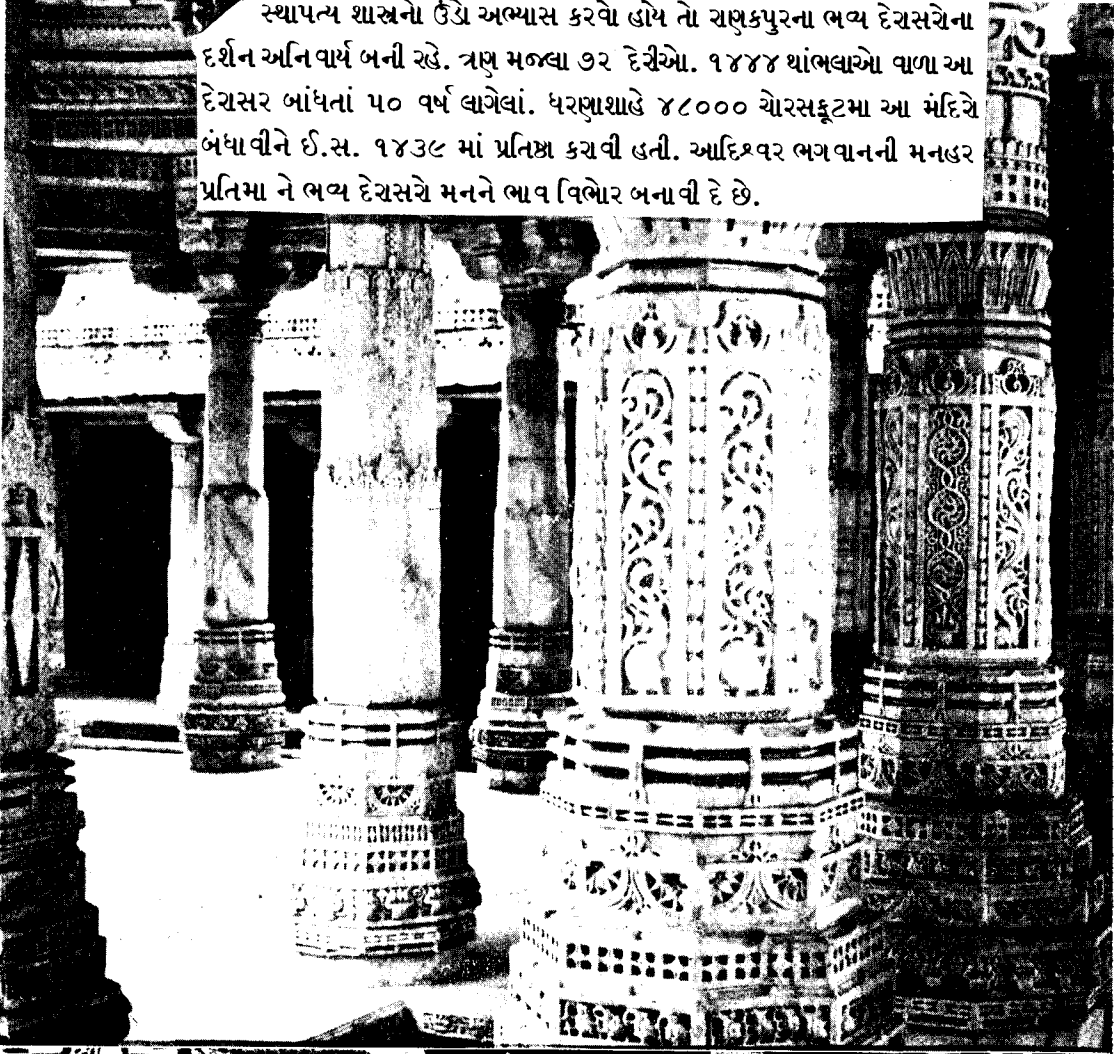 સ્થાપત્ય શાસ્ત્રનો ઉંડો અભ્યાસ કરવો હોય તો રાણકપુરના ભવ્ય દેરાસરોના
દર્શન અનિવાર્ય બની રહે. ત્રણ મજલા ૭૨ દેરીઓ. ૧૪૪૪ થાંભલાઓ વાળા આ
દેરાસર બાંધતાં ૫૦ વર્ષ લાગેલાં. ધરણાશાહે ૪૮૦૦૦ ચોરસફૂટમા આ મંદિરો
બંધાવીને ઈ.સ. ૧૪૩૯ માં પ્રતિષ્ઠા કરાવી હતી. આદિશ્વર ભગવાનની મનહર
પ્રતિમા ને ભવ્ય દેરાસરો મનને ભાવ વિભોર બનાવી દે છે.